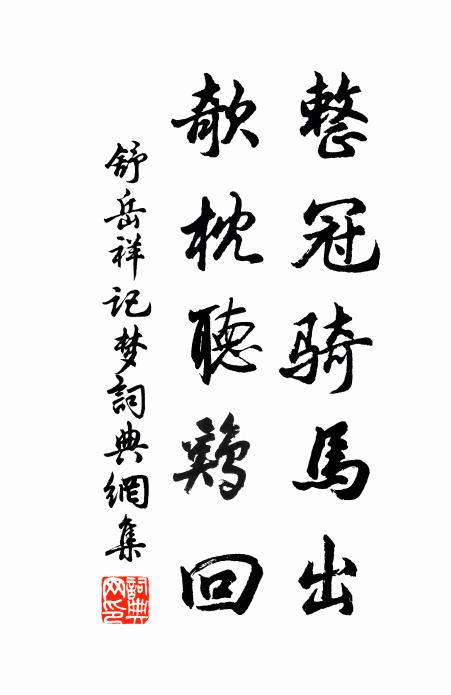 整冠騎馬出
欹枕聽鷄回
舒岳祥記梦詞典網集
詞典网印